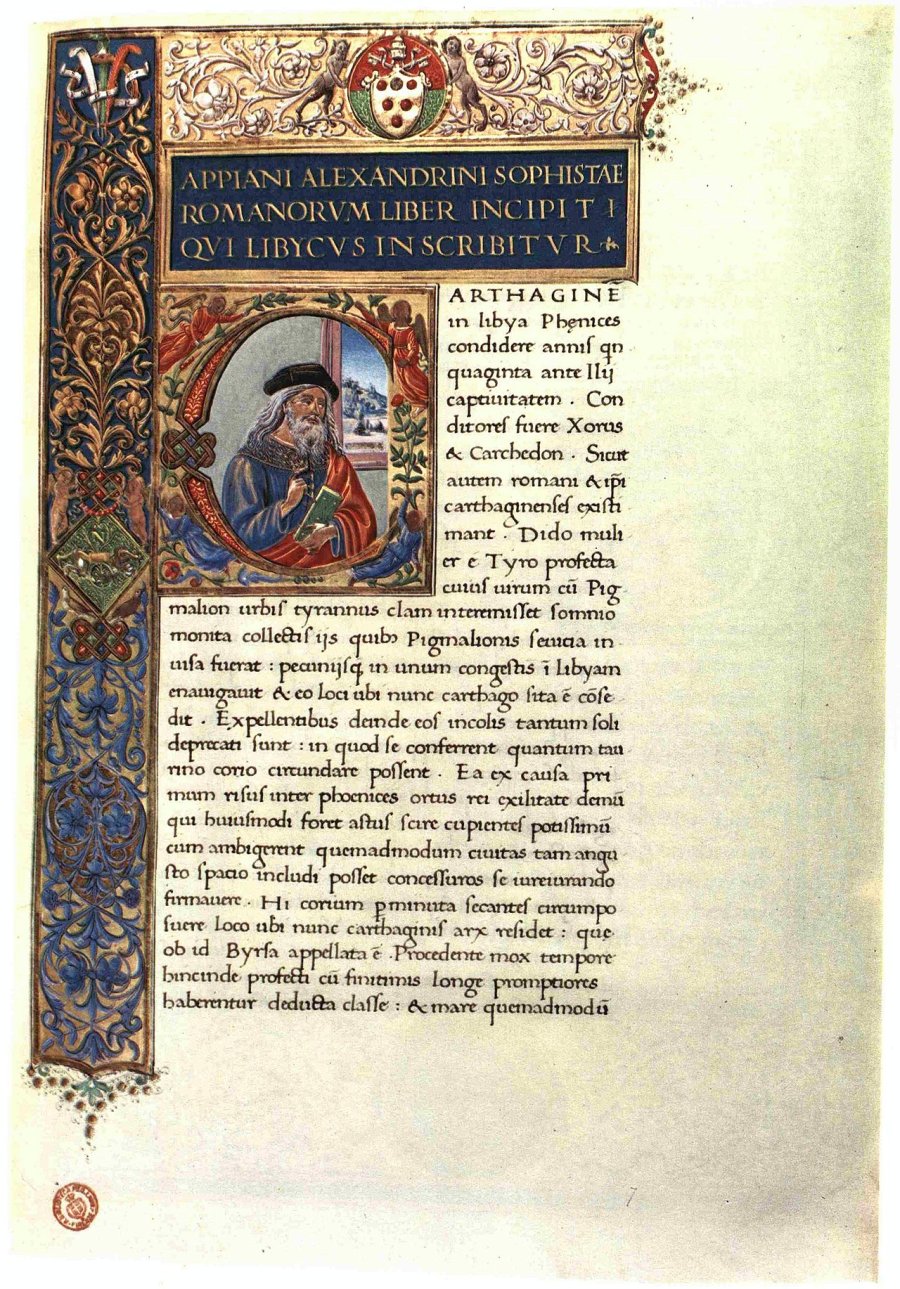 APPIANI ALEXANDRINI SOPHISTAE
ROMANORVM LIBER INCIPIT I
QVI LIBYCVS INSCRIBITVR
CARTHAGINĒ
in libya Phęnices
condidere annis qn
quaginta ante Ilij
captiuitatem . Con
ditores fuere Xorus
& Carchedon . Sicut
autem romani & ip̄i
carthaginenses existi
mant . Dido muli
er e Tyro profecta
cuius uirum cū Pig
malion urbis tyrannus clam interemisset somnio
monita collectis ijs quibꝫ Pigmalionis seuicia in
uisa fuerat : pecunijsqꝫ in unum congestis ī libyam
enauigauit & eo loci ubi nunc carthago sita ē cōse
dit . Expellentibus deinde eos incolis tantum soli
deprecati sunt : in quod se conferrent quantum tau
rino corio circundare possent . Ea ex causa pri
mum risus inter phoenices ortus rei exilitate demū
qui huiusmodi foret astus scire cupientes potissimū
cum ambigerent quemadmodum ciuitas tam angu
sto spacio includi posset concessuros se iureiurando
firmauere . Hi corium ꝑminuta secantes circumpo
suere loco ubi nunc carthaginis arx residet : quę
ob id Byrsa appellata ē . Procedente mox tempore
hincinde profecti cū finitimis longe promptiores
haberentur deducta classe : & mare quemadmodū